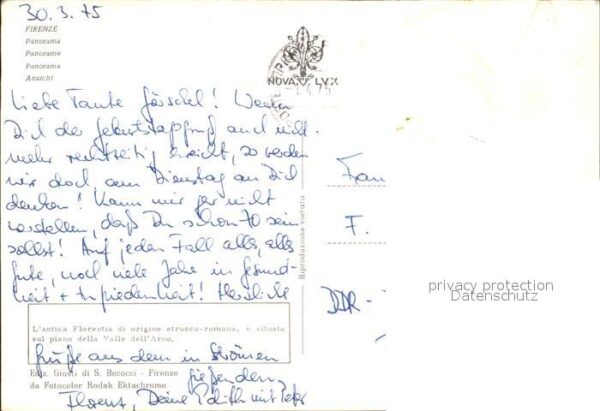 30.3.75
FIRENZE
Panorama
Panorame
Panorama
Ansicht
NOVA LVX
Liebe Tante Görschel! Wenn
Dich der Geburtstagsgruß auch nicht
mehr rechtzeitig erreicht, so werden
wir doch am Dienstag an Dich
denken! Kann mir gar nicht
vorstellen, daß Du schon 70 sein
sollst! Auf jeden Fall alles, alles
Gute, noch viele Jahre in Gesund-
heit + Zufriedenheit! Herzliche
Grüße aus dem in Strömen
gießenden
Florenz, Deine Edith mit Peter
L'antica Florentia di origine etrusco-romana, è situata
sul piano della Valle dell'Arno.
Ediz. Giusti di S. Becocci - Firenze
da Fotocolor Kodak Ektachrome
Riproduzione vietata
F.
DDR-
privacy protection
Datenschutz